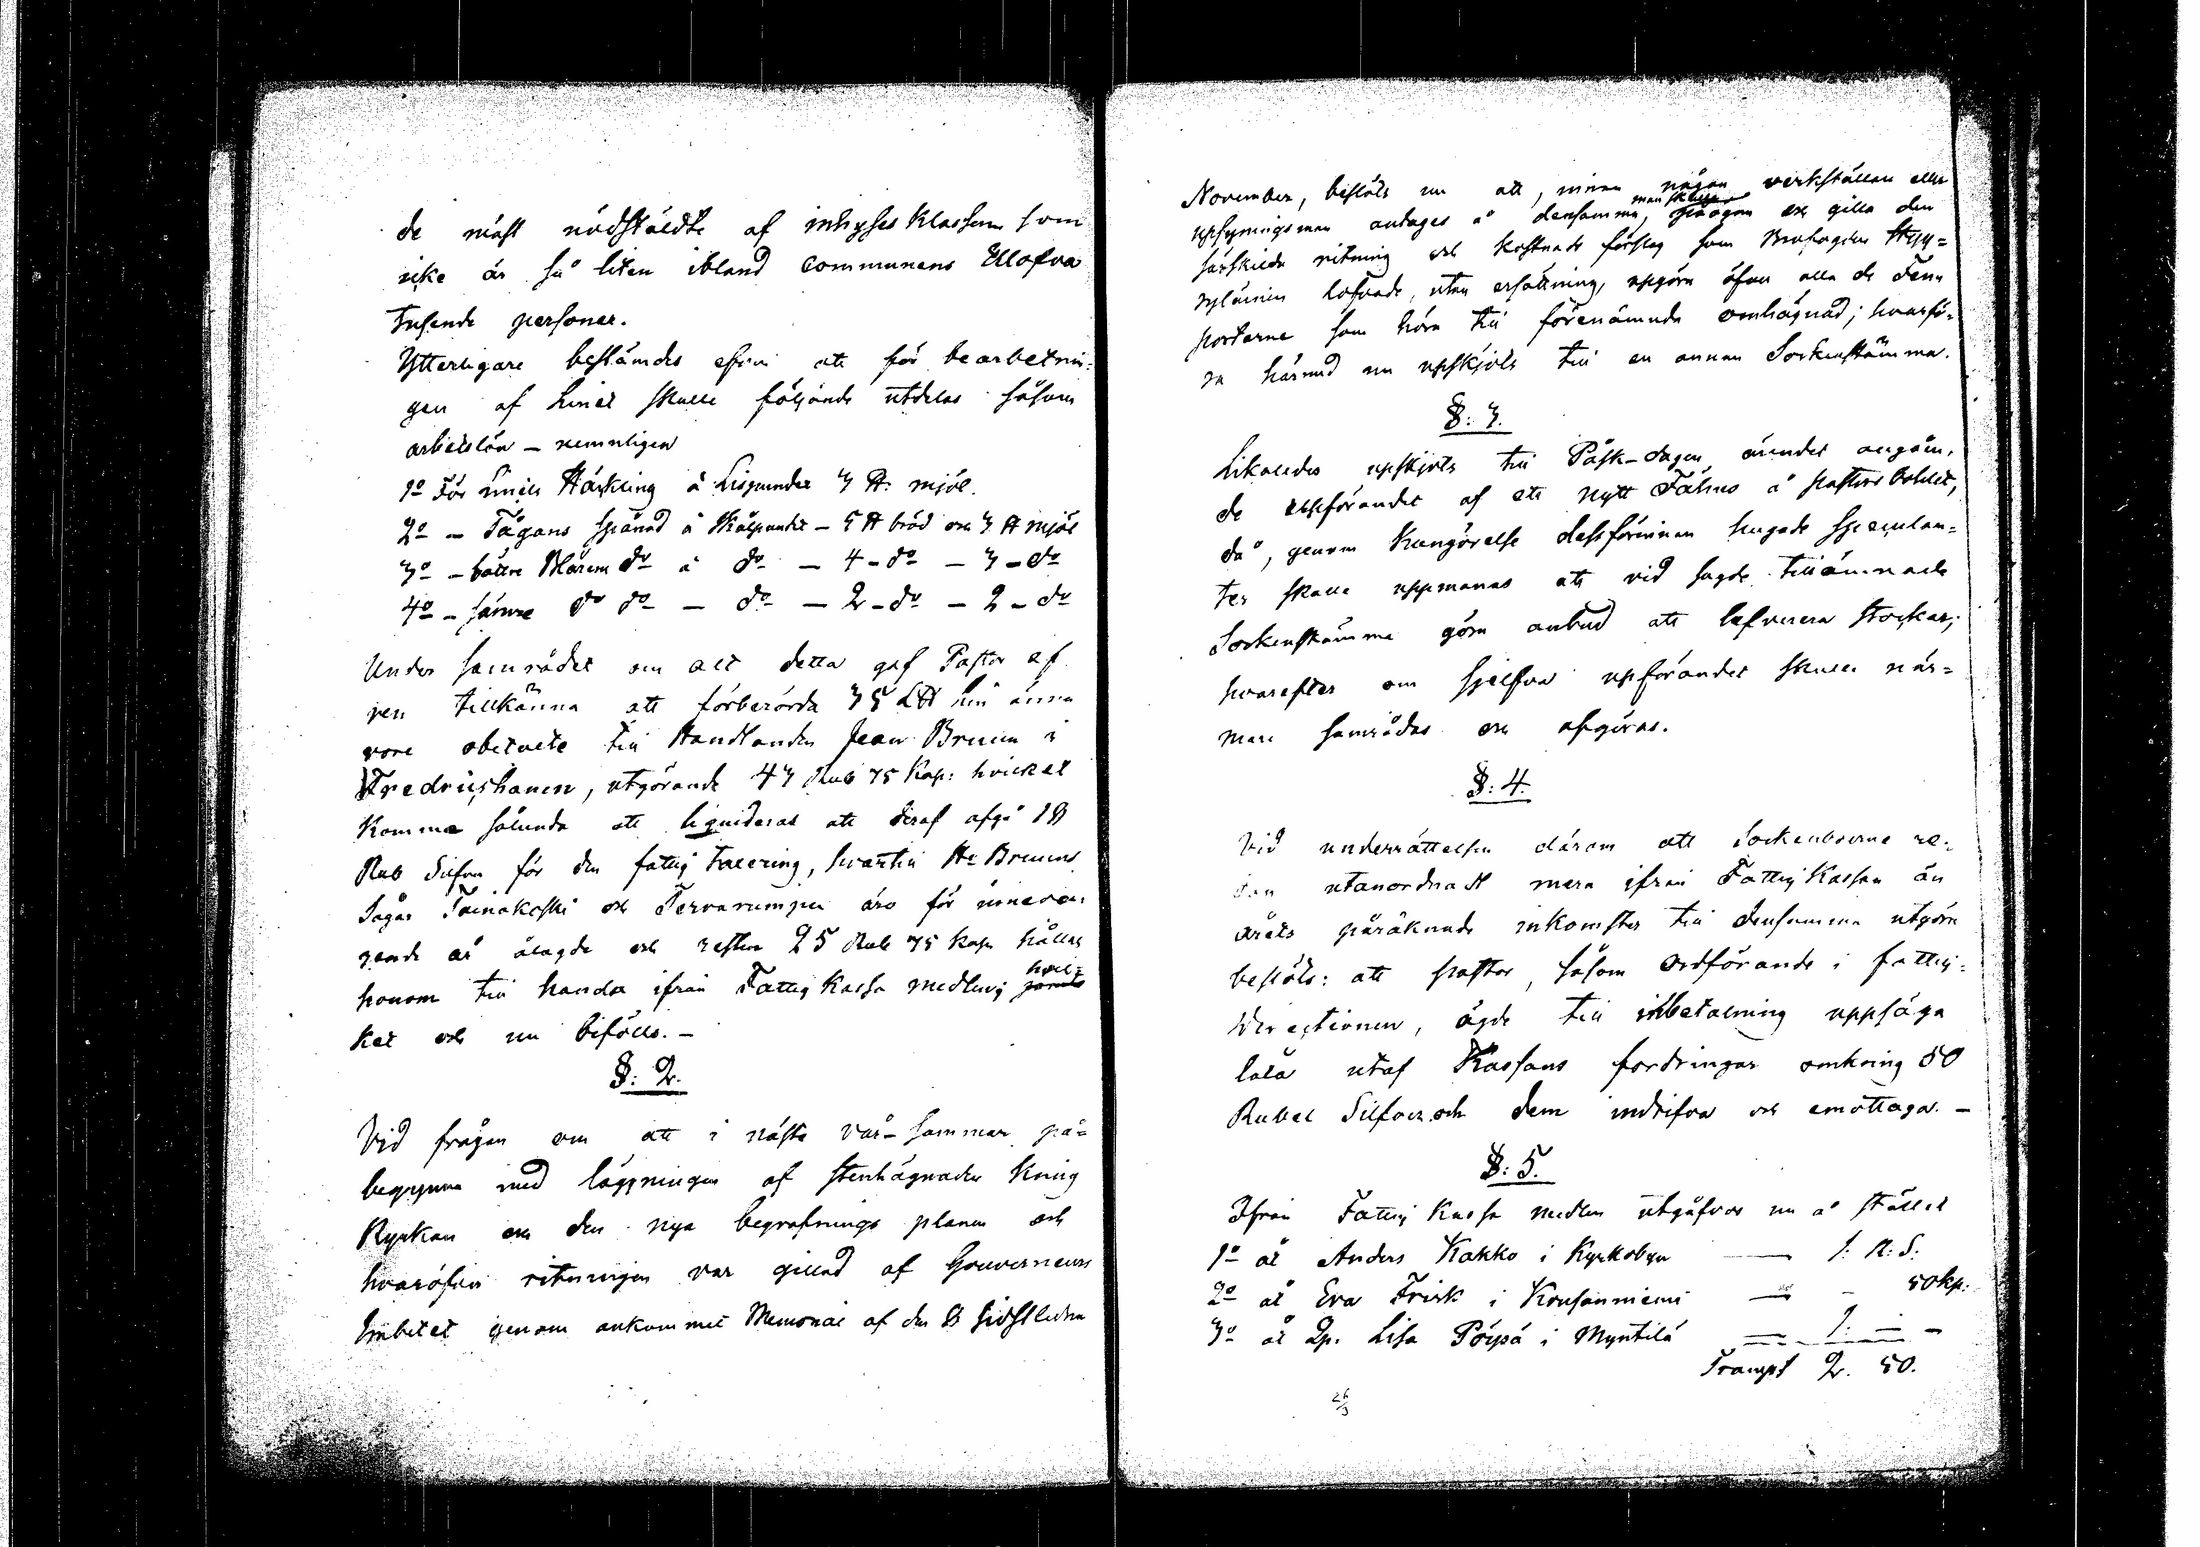 de mäst nödstäldte af inhyses Klassen som
icke är så liten ibland communens Ellofva
Tusende personer.
Ytterligare bestämdes efven att för bearbetnin-
gen af Linet skulle följande utdelas såsom
arbetslön – nemnligen
1o För Linets Häckling á Lispundet 3 ℔: mjöl.
2o – Tågans spånad á Skålpundet – 5 ℔ bröd och 3 ℔ mjöl
3o – bättre Blårens do á do – 4 – do – 3 – do
4o – sämre do do – do – 2 – do – 2 – do
Under samrådet om allt detta gaf Pastor äf
ven tillkänna att förberörda 35 L℔ Lin ännu
vore obetalte till Handlanden Jean Bruun i
Fredricshamn, utgörande 43 Rub 75 Kop: hvilket
Komme sålunda att liqvideras att deraf afgå 18
Rub Silfver för den fattig taxering, hvartill Hr Bruuns
Sågar Toinakoski och Tervarumpu äro för inneva-
rande år ålagde och resten 25 Rub 75 Kop hålles
honom till handa ifrån Fattig Kassa medlen; hvil-
ket och nu biföllls. –
§: 2.
Vid frågan om att i nästa vår-sommar på-
begynna med läggningen af stenhägnaden Kring
Kyrkan och den nya begrafnings planen och
hvaröfver ritningen var gillad af Gouverneurs
Embetet genom ankommet Memorial af den 8 sidstledne
November, beslöts nu att, innan någon verkställan eller
uppsyningsman antages å densamma, man skulle se och gilla den
särskilda ritning och kostnads förslag som Brofogden Hyy-
ryläinen lofvade, utan ersättning, upgöra öfver alla de Fem
portarne som höra till förenämnde omhägnad; hvarfö-
re härmed nu upskjöts till en annan Sockenstämma.
§: 3.
Likaledes upskjöts till Påsk-dagen ärendet angåen-
de uppförandet af ett nytt Fähus å pastors Bohlet,
då, genom Kungörelse dessförinnan hugade spekulan-
ter skulle uppmanas att vid sagde tillämnade
Sockenstämma göra anbud att lefverera stockar;
hvarefter om sjelfva upförandet skulle när-
mare samrådas och afgöras.
§: 4.
Vid underrättelsen därom att Sockenboerne re-
dan utanordnadt mera ifrån Fattig Kassan än
årets påräknade inkomster till densamma utgöra
beslöts: att pastor, såsom Ordförande i fattig-
Directionen, ägde till inbetalning uppsäga
låta utaf Kassans fordringar omkring 50
Rubel Silfver och dem indrifva och emottaga. –
§: 5.
Ifrån Fattig Kassa medlen utgåfvos nu å stället
1o åt Anders Kakko i Kyrkobyn — 1. R: S:
2o åt Eva Frisk i Kousanniemi — – 50 kp:
3o åt Qp. Lisa Pöyspä i Myntilä — 1. – –
Transpt 2. 50.
26/3